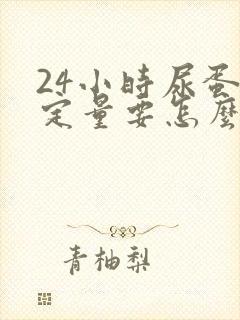 24小時尿蛋
定量要怎麼
青柚梨